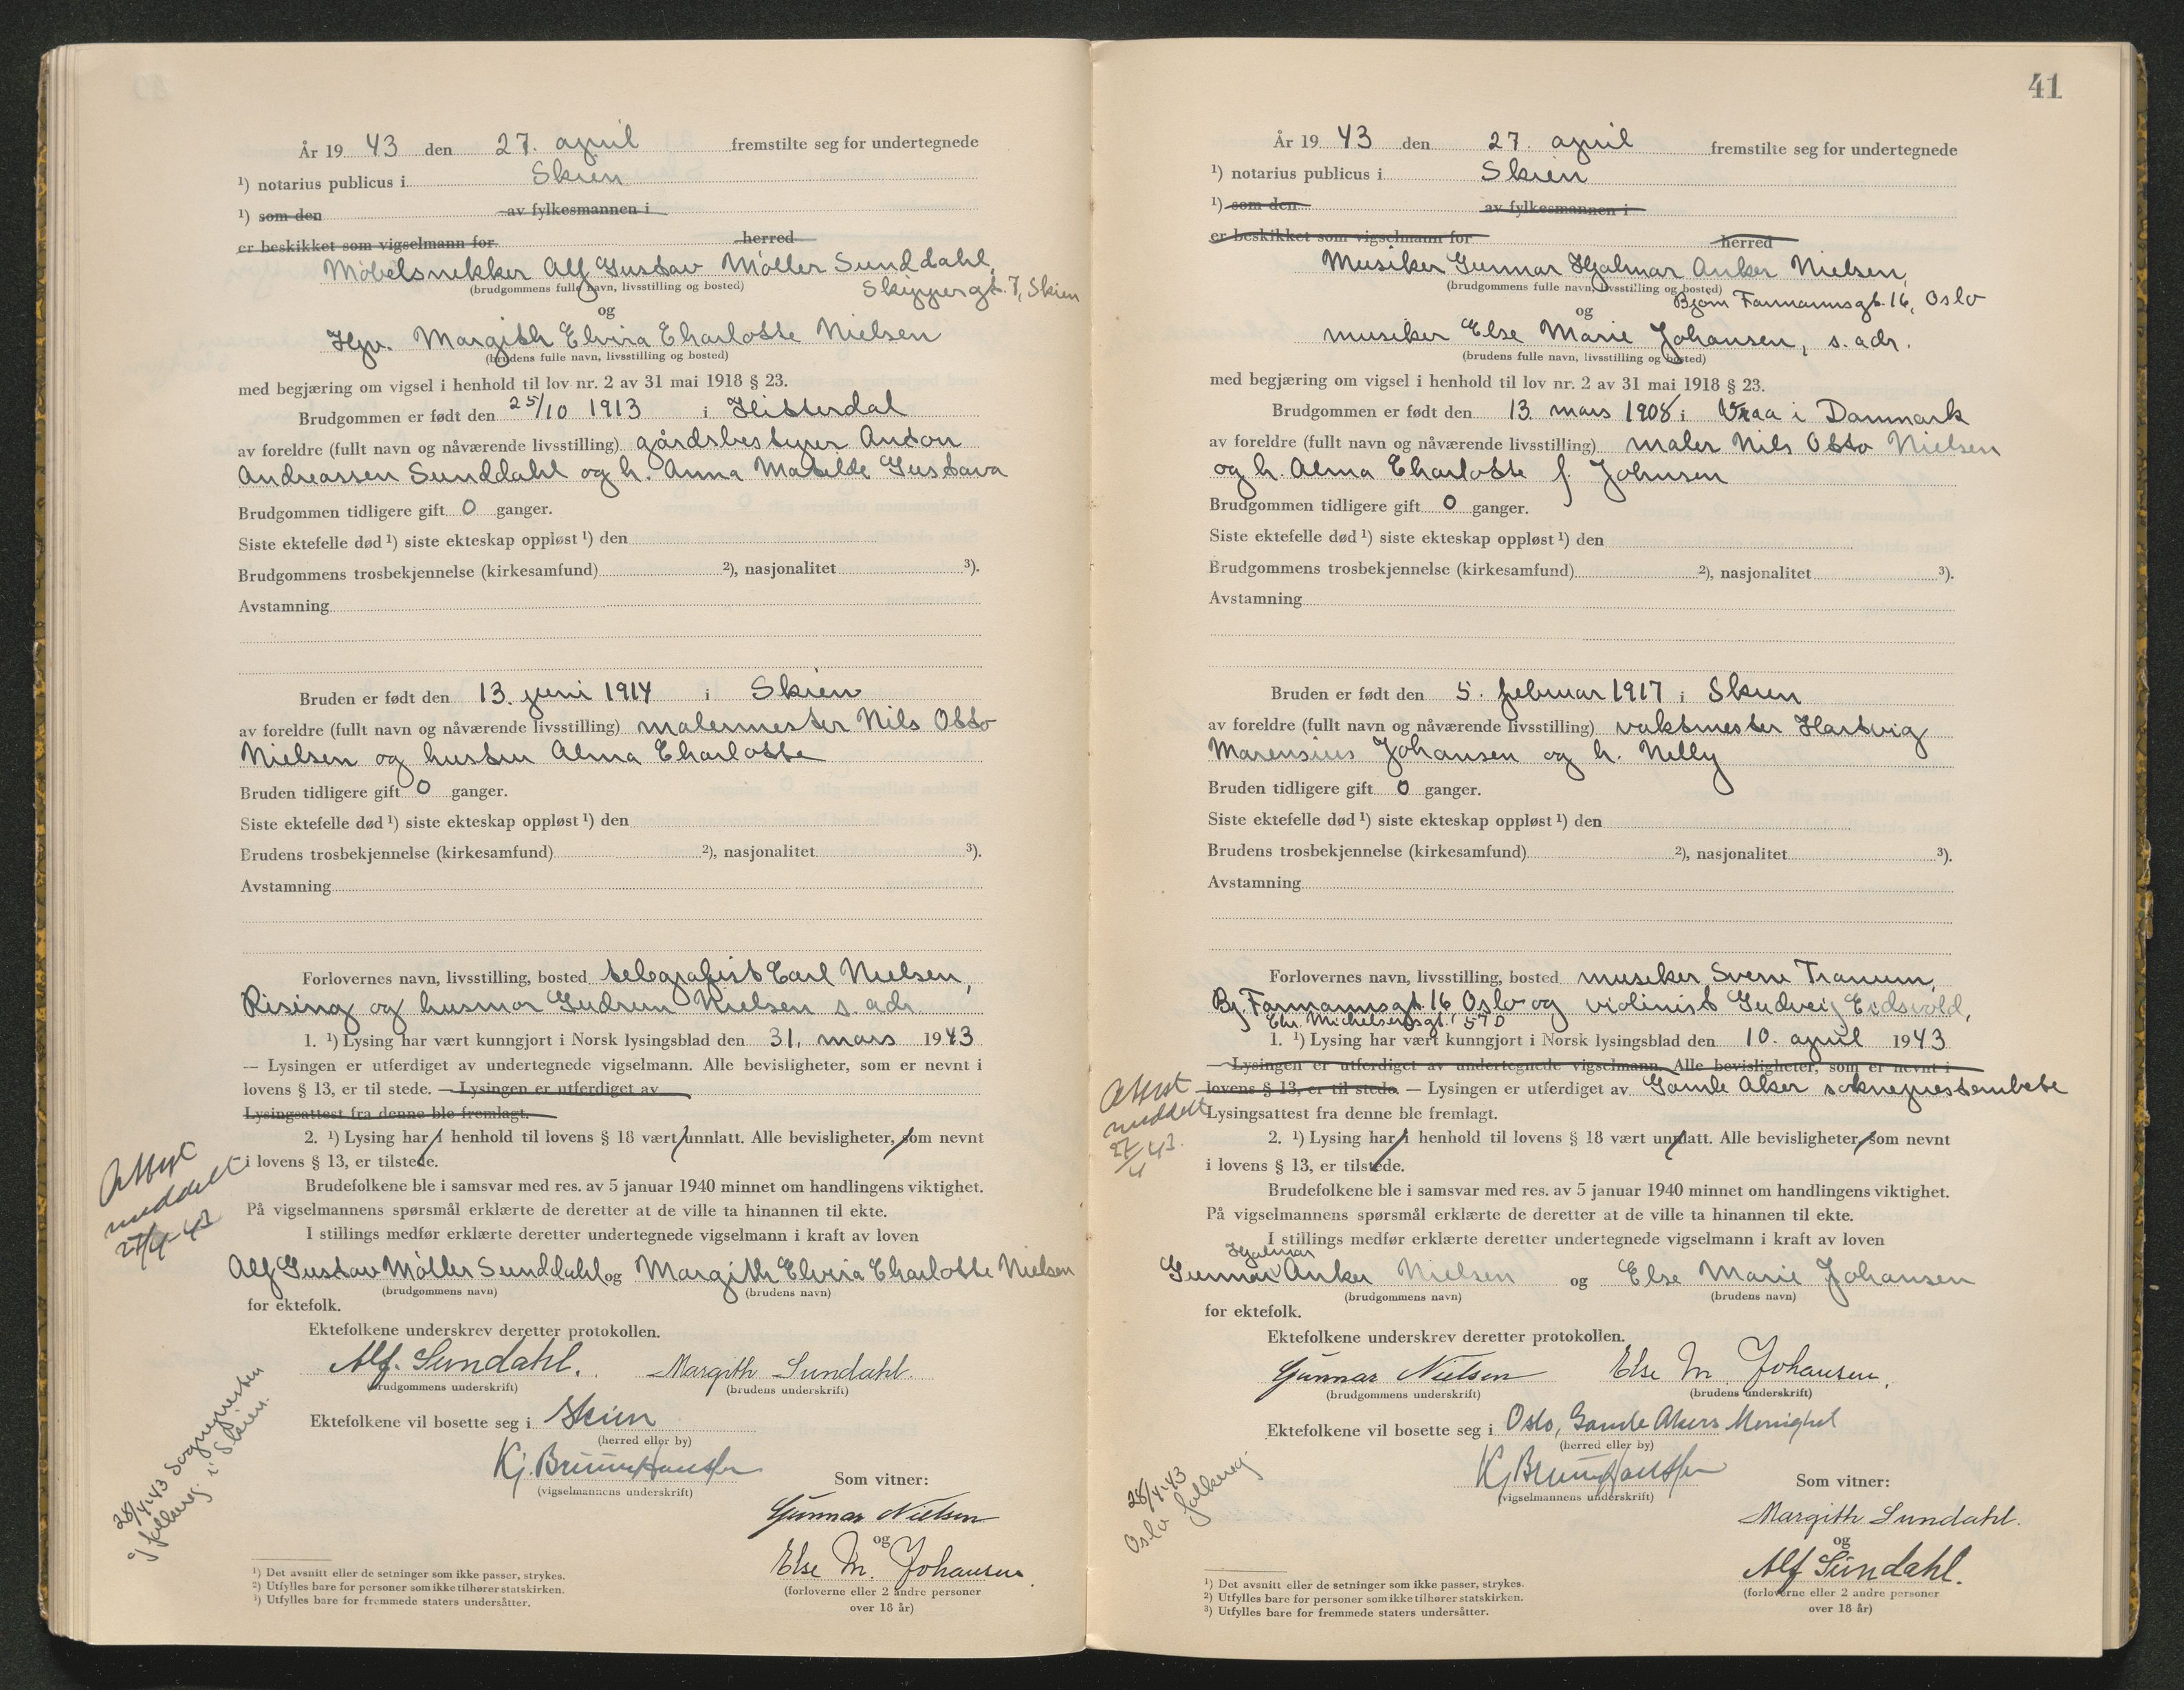 År 19 43 den 27. april fremstilte seg for undertegnede
¹) notarius publicus i Skien
¹) som den av fylkesmannen i
er beskikket som vigselmann for herred
Møbelsnekker Alf Gustav Møller Sunddahl,
(brudgommens fulle navn, livsstilling og bosted) Skippergt. 7, Skien
og
Hjv. Margith Elvira Charlotte Nielsen
(brudens fulle navn, livsstilling og bosted)
med begjæring om vigsel i henhold til lov nr. 2 av 31 mai 1918 § 23.
Brudgommen er født den 25/10 1913 i Hitterdal
av foreldre (fullt navn og nåværende livsstilling) gårdsbestyrer Anton
Andreassen Sunddahl og h. Anna Matilde Gustava
Brudgommen tidligere gift 0 ganger.
Siste ektefelle død ¹) siste ekteskap oppløst ¹) den
Brudgommens trosbekjennelse (kirkesamfund) ²), nasjonalitet ³).
Avstamning
Bruden er født den 13. juni 1914 i Skien
av foreldre (fullt navn og nåværende livsstilling) malermester Nils Otto
Nielsen og hustru Alma Charlotte
Bruden tidligere gift 0 ganger.
Siste ektefelle død ¹) siste ekteskap oppløst ¹) den
Brudens trosbekjennelse (kirkesamfund) ²), nasjonalitet ³).
Avstamning
Forlovernes navn, livsstilling, bosted telegrafist Carl Nielsen,
Rising og husmor Gudrun Nielsen s. adr.
1. ¹) Lysing har vært kunngjort i Norsk lysingsblad den 31. mars 1943
— Lysingen er utferdiget av undertegnede vigselmann. Alle bevisligheter, som er nevnt i
lovens § 13, er til stede. — Lysingen er utferdiget av
Lysingsattest fra denne ble fremlagt.
2. ¹) Lysing har i henhold til lovens § 18 vært unnlatt. Alle bevisligheter, som nevnt
i lovens § 13, er tilstede.
Attest
meddelt
27/4-43
Brudefolkene ble i samsvar med res. av 5 januar 1940 minnet om handlingens viktighet.
På vigselmannens spørsmål erklærte de deretter at de ville ta hinannen til ekte.
I stillings medfør erklærte deretter undertegnede vigselmann i kraft av loven
Alf Gustav Møller Sunddahl og Margith Elvira Charlotte Nielsen
(brudgommens navn) (brudens navn)
for ektefolk.
Ektefolkene underskrev deretter protokollen.
Alf. Sundahl. Margith Sundahl.
(brudgommens underskrift) (brudens underskrift)
Ektefolkene vil bosette seg i Skien
(herred eller by)
(vigselmannens underskrift)
28/4-43 Sognepresten
i Skien.
Som vitner:
Gunnar Nielsen
og
Else M. Johansen
(forloverne eller 2 andre personer
over 18 år)
¹) Det avsnitt eller de setninger som ikke passer, strykes.
²) Utfylles bare for personer som ikke tilhører statskirken.
³) Utfylles bare for fremmede staters undersåtter.
41
År 19 43 den 27. april fremstilte seg for undertegnede
¹) notarius publicus i Skien
¹) som den av fylkesmannen i
er beskikket som vigselmann for herred
Musiker Gunnar Hjalmar Anker Nielsen,
(brudgommens fulle navn, livsstilling og bosted)
Bjørn Farmannsgt. 16, Oslo
og
musiker Else Marie Johansen, s. adr.
(brudens fulle navn, livsstilling og bosted)
med begjæring om vigsel i henhold til lov nr. 2 av 31 mai 1918 § 23.
Brudgommen er født den 13. mars 1908 i Vraa i Danmark
av foreldre (fullt navn og nåværende livsstilling) maler Nils Otto Nielsen
og h. Alma Charlotte f. Johnsen
Brudgommen tidligere gift 0 ganger.
Siste ektefelle død ¹) siste ekteskap oppløst ¹) den
Brudgommens trosbekjennelse (kirkesamfund) ²), nasjonalitet ³).
Avstamning
Bruden er født den 5. februar 1917 i Skien
av foreldre (fullt navn og nåværende livsstilling) vaktmester Hartvig
Marensius Johansen og h. Nelly
Bruden tidligere gift 0 ganger.
Siste ektefelle død ¹) siste ekteskap oppløst ¹) den
Brudens trosbekjennelse (kirkesamfund) ²), nasjonalitet ³).
Avstamning
Forlovernes navn, livsstilling, bosted musiker Sverre Tranum,
Bj. Farmannsgt. 16, Oslo og violinist Gudveig Eidsvold,
Chr. Michelsensgt. 57 D
1. ¹) Lysing har vært kunngjort i Norsk lysingsblad den 10. april 1943
— Lysingen er utferdiget av undertegnede vigselmann. Alle bevisligheter, som er nevnt i
lovens § 13, er til stede. — Lysingen er utferdiget av Gamle Aker sokneprestembete
Lysingsattest fra denne ble fremlagt.
Attest
meddelt
27/4 43.
2. ¹) Lysing har i henhold til lovens § 18 vært unnlatt. Alle bevisligheter, som nevnt
i lovens § 13, er tilstede.
Brudefolkene ble i samsvar med res. av 5 januar 1940 minnet om handlingens viktighet.
På vigselmannens spørsmål erklærte de deretter at de ville ta hinannen til ekte.
I stillings medfør erklærte deretter undertegnede vigselmann i kraft av loven
Hjalmar
Gunnar Anker Nielsen og Else Marie Johansen
(brudgommens navn) (brudens navn)
for ektefolk.
Ektefolkene underskrev deretter protokollen.
Gunnar Nielsen Else M. Johansen.
(brudgommens underskrift) (brudens underskrift)
Ektefolkene vil bosette seg i Oslo, Gamle Akers Menighet
(herred eller by)
(vigselmannens underskrift)
28/4-43
Oslo folkereg
Som vitner:
Margith Sundahl.
og
Alf Sundahl.
(forloverne eller 2 andre personer
over 18 år)
¹) Det avsnitt eller de setninger som ikke passer, strykes.
²) Utfylles bare for personer som ikke tilhører statskirken.
³) Utfylles bare for fremmede staters undersåtter.